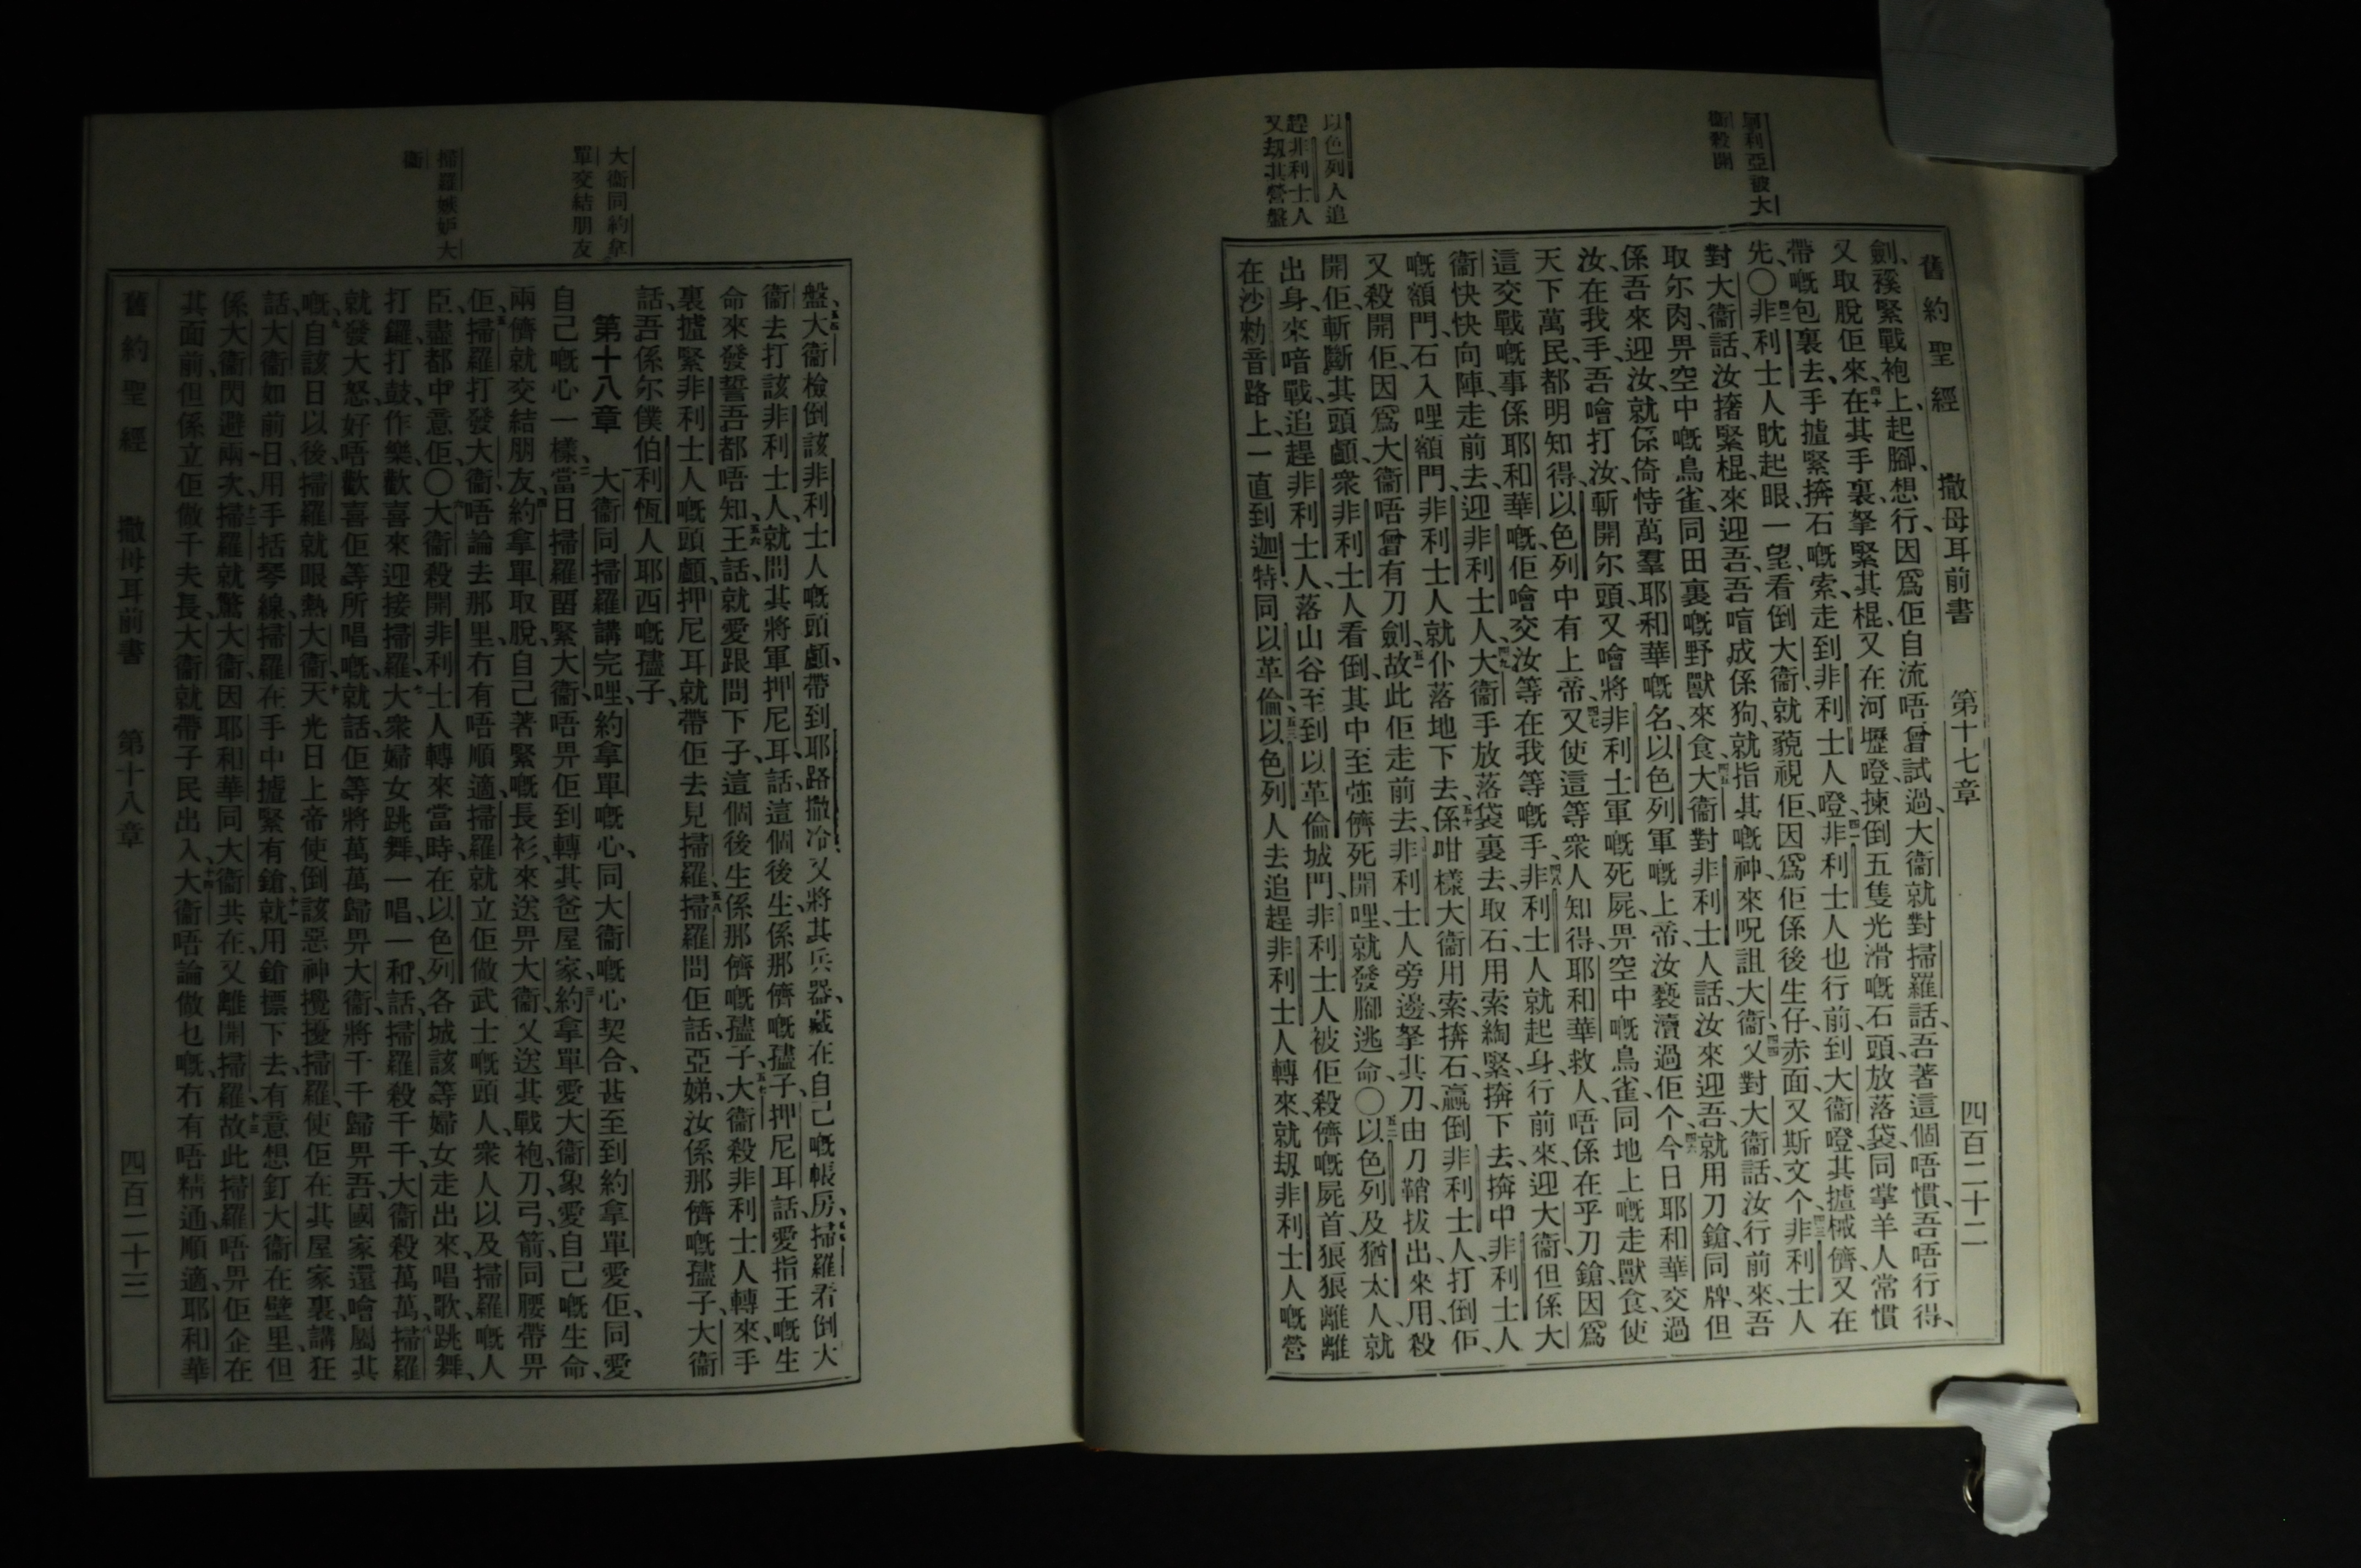 舊約聖經 撒母耳前書 第十七章 四百二十二
哥利亞被大
衞殺開
以色列人追
趕非利士人
又刼其營盤
劍𧞓緊戰袍上、起腳、想行、因爲佢自流唔曾試過、大衞就對掃羅話、吾著這個唔慣、吾唔行得、
又取脫佢來、四十在其手裏拏緊其棍、又在河壢嶝、揀倒五隻光滑嘅石頭、放落袋、同掌羊人常慣
帶嘅包裏去、手攎緊𢫬石嘅索、走到非利士人嶝、四一非利士人也行前、到大衞嶝、其攎械儕、又在
先、〇四二非利士人眈起眼一望、看倒大衞、就藐視佢、因爲佢係後生仔、赤面、又斯文个、四三非利士人
對大衞話、汝撦緊棍、來迎吾、吾喑成係狗、就指其嘅神、來呪詛大衞、四四又對大衞話、汝行前來、吾
取尔肉、畀空中嘅鳥雀、同田裏嘅野獸來食、四五大衞對非利士人話、汝來迎吾、就用刀鎗同牌、但
係吾來迎汝、就係倚恃萬羣耶和華嘅名、以色列軍嘅上帝、汝褻瀆過佢个、四六今日耶和華交過
汝、在我手、吾噲打汝、斬開尔頭、又噲將非利士軍嘅死屍、畀空中嘅鳥雀、同地上嘅走獸食、使
天下萬民、都明知得、以色列中有上帝、四七又使這等衆人知得、耶和華救人、唔係在乎刀鎗、因爲
這交戰嘅事、係耶和華嘅、佢噲交汝等在我等嘅手、四八非利士人就起身、行前來、迎大衞、但係大
衞快快向陣、走前去、迎非利士人、四九大衞手放落袋裏去、取石、用索綯緊、𢫬下去、𢫬中非利士人
嘅額門、石入哩額門、非利士人就仆落地下去、五十係咁樣大衞用索、𢫬石、贏倒非利士人、打倒佢、
又殺開佢、因爲大衞唔曾有刀劍、五一故此佢走前去、非利士人旁邊、拏其刀、由刀鞘拔出來、用殺
開佢、斬斷其頭顱、衆非利士人看倒、其中至強儕死開哩、就發腳逃命、〇五二以色列及猶太人、就
出身、來喑戰、追趕非利士人、落山谷、至到以革倫城門、非利士人被佢殺儕嘅屍首、狼狼離離
在沙勑音路上、一直到迦特、同以革倫、五三以色列人去追趕非利士人轉來、就刼非利士人嘅營
大衞同約拿
單交結朋友
掃羅嫉妒大
衞
盤、五四大衞檢倒該非利士人嘅頭顱、帶到耶路撒冷、又將其兵器、藏在自己嘅帳房、五五掃羅看倒大
衞去打該非利士人、就問其將軍押尼耳話、這個後生、係那儕嘅孻子、押尼耳話、愛指王嘅生
命來發誓、吾都唔知、五六王話、就愛跟問下子、這個後生、係那儕嘅孻子、五七大衞殺非利士人轉來、手
裏攎緊非利士人嘅頭顱、押尼耳就帶佢去見掃羅、五八掃羅問佢話、亞娣、汝係那儕嘅孻子、大衞
話、吾係尔僕、伯利恆人耶西嘅孻子、
第十八章 一大衞同掃羅講完哩、約拿單嘅心、同大衞嘅心契合、甚至到約拿單愛佢、同愛
自己嘅心一樣、二當日掃羅畱緊大衞、唔畀佢到轉其爸屋家、三約拿單愛大衞、象愛自己嘅生命、
兩儕就交結朋友、四約拿單取脫自己著緊嘅長衫、來送畀大衞、又送其戰袍、刀、弓、箭、同腰帶畀
佢、五掃羅打發大衞、唔論去那里、冇有唔順適、掃羅就立佢做武士嘅頭人、衆人以及掃羅嘅人
臣、盡都中意佢、〇六大衞殺開非利士人轉來當時、在以色列各城該等婦女走出來、唱歌、跳舞、
打鑼、打鼓、作樂、歡喜來迎接掃羅、七大衆婦女跳舞、一唱、一和、話、掃羅殺千千、大衞殺萬萬、八掃羅
就發大怒、好唔歡喜佢等所唱嘅、就話、佢等將萬萬歸畀大衞、將千千歸畀吾、國家還噲屬其
嘅、九自該日以後、掃羅就眼熱大衞、十天光日上帝使倒該惡神攪擾掃羅、使佢在其屋家裏、講狂
話、大衞如前日、用手括琴線、掃羅在手中攎緊有鎗、十一就用鎗摽下去、有意想釘大衞在壁里、但
係大衞閃避兩次、十二掃羅就驚大衞、因耶和華同大衞共在、又離開掃羅、十三故此掃羅唔畀佢企在
其面前、但係立佢做千夫長、大衞就帶子民出入、十四大衞唔論做乜嘅、冇有唔精通順適、耶和華
舊約聖經 撒母耳前書 第十八章 四百二十三